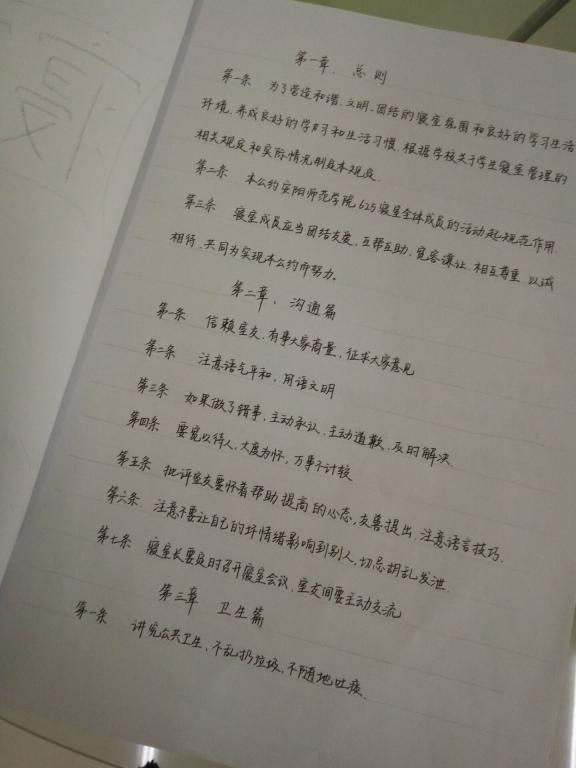 第一章、总则
第一条 为了营造和谐、文明、团结的寝室氛围和良好的学习生活
环境,养成良好的学习和生活习惯,根据学校关于学生寝室管理的
相关规定和实际情况制定本规定.
第二条 本公约安阳师范学院625寝室全体成员的活动起规范作用.
第三条 寝室成员应当团结友爱、互帮互助、宽容谦让、相互尊重、以诚
相待,共同为实现本公约而努力。
第二章、沟通篇
第一条 信赖室友,有事大家商量,征求大家意见
第二条 注意语气平和,用语文明
第三条 如果做了错事,主动承认,主动道歉,及时解决.
第四条 要宽以待人,大度为怀,万事不计较
第五条 批评室友要怀着帮助提高的心态,友善提出,注意语言技巧.
第六条. 注意不要让自己的坏情绪影响到别人,切忌胡乱发泄.
第七条 寝室长要定时召开寝室会议,室友间要主动交流
第三章 卫生篇
第一条 讲究公共卫生,不乱扔垃圾,不随地吐痰.